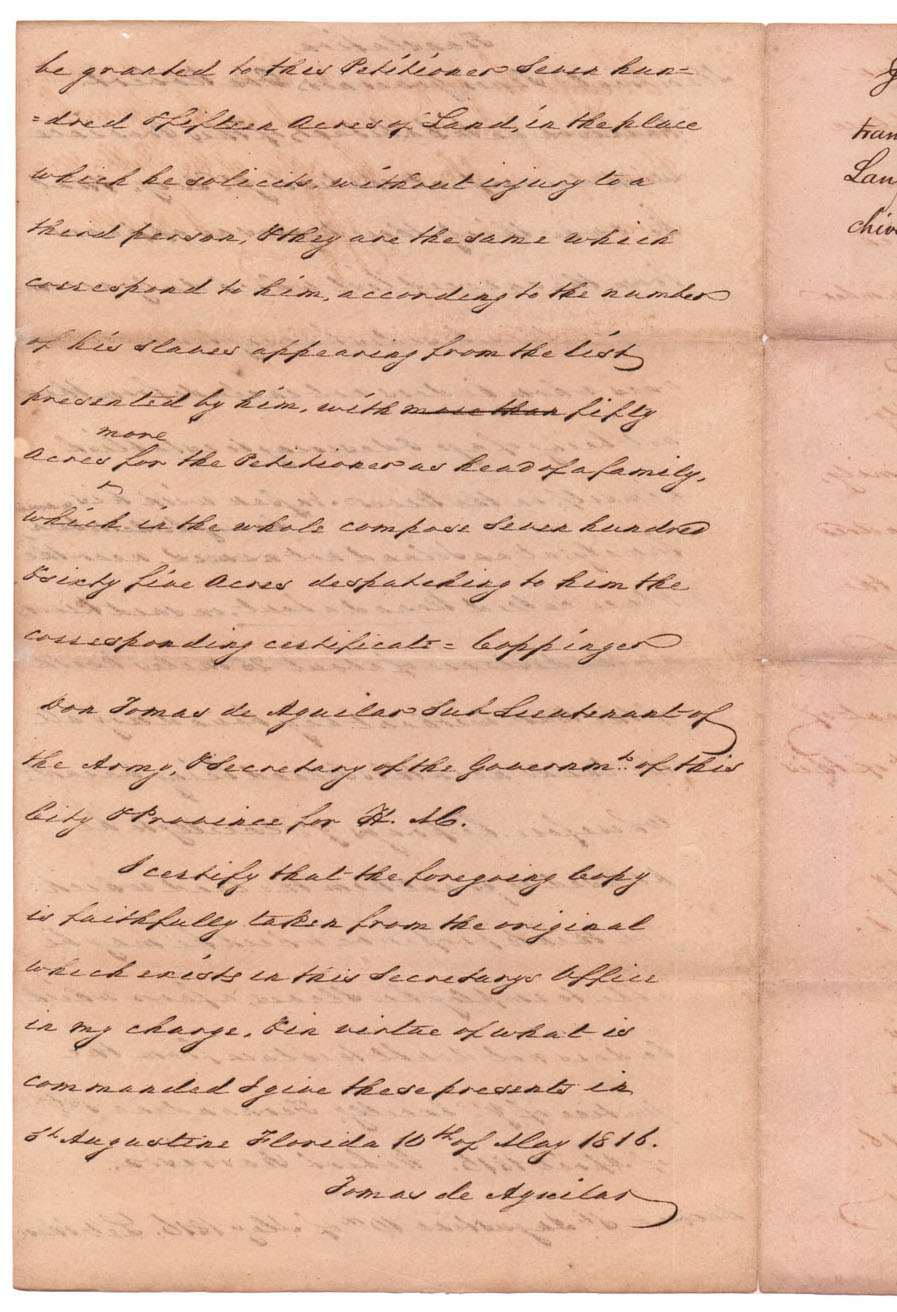 be granted to this Petitioner Seven hun=
=dred & fifteen Acres of Land, in the place
which he solicits, without injury to a
third person, & they are the same which
correspond to him, according to the number
of his slaves appearing from the list
presented by him, with more than fifty
more
Acres for the Petitioner as head of a family,
which in the whole compose Seven hundred
& sixty five Acres despatching to him the
corresponding certificate = Coppinger
Don Tomas de Aguilar Sub-Lieutenant of
the Army, & Secretary of the Governmt. of this
City & Province for H. M.
I certify that the foregoing Copy
is faithfully taken from the original
which exists in this Secretarys Office
in my charge, & in virtue of what is
commanded I give these presents in
St. Augustine Florida 10th of May 1816.
Tomas de Aguilar
tran
Lan
chiv